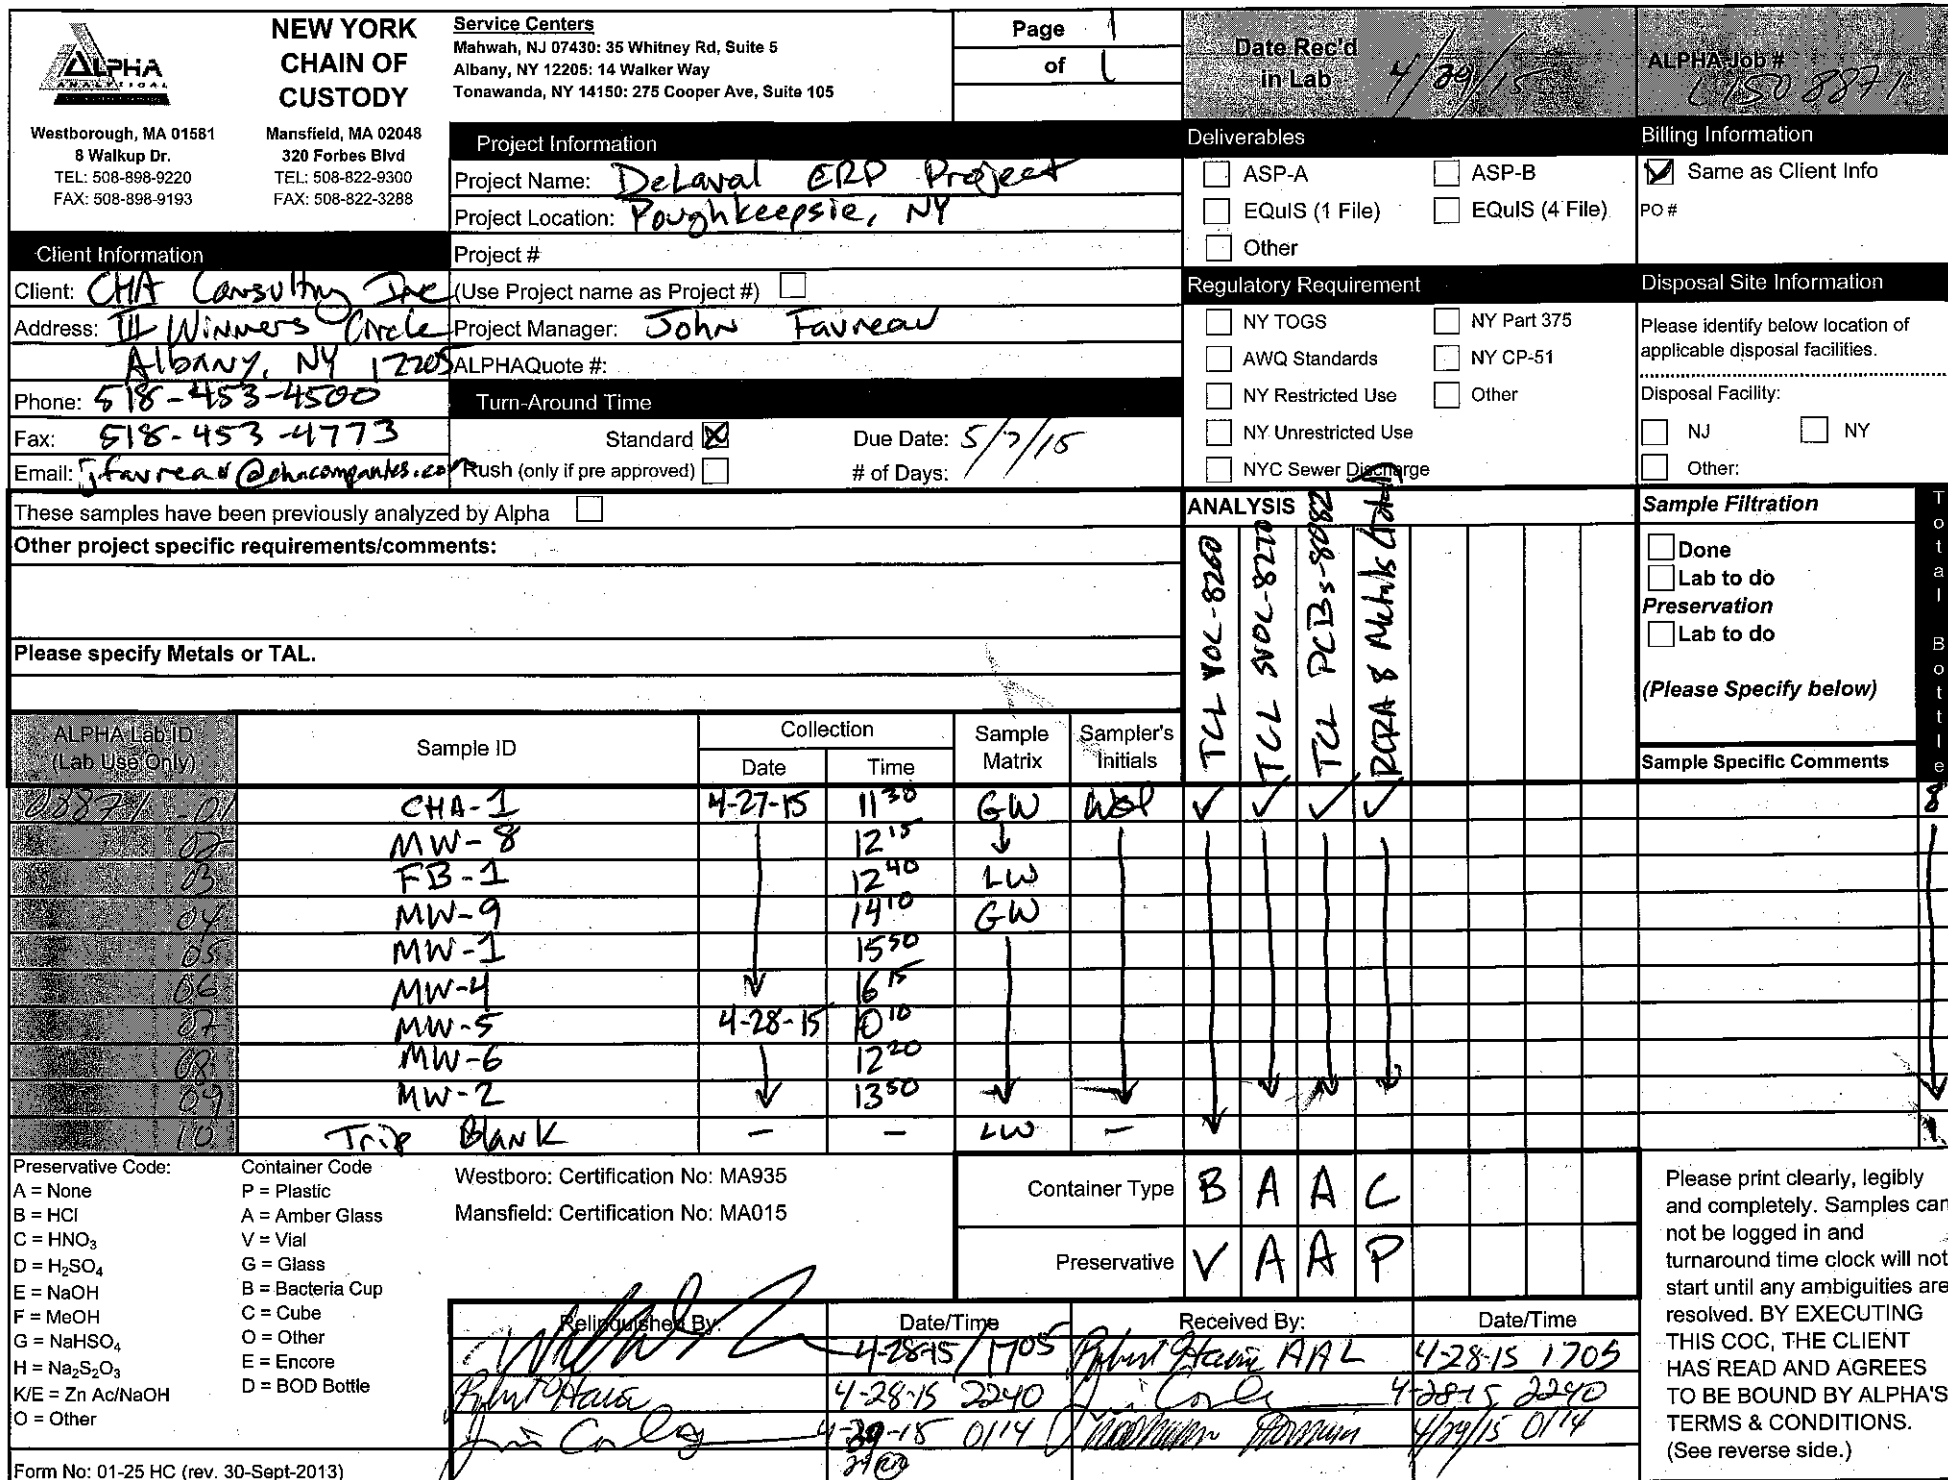 ALPHA
ANALYTICAL
NEW YORK
CHAIN OF
CUSTODY
Service Centers
Mahwah, NJ 07430: 35 Whitney Rd, Suite 5
Albany, NY 12205: 14 Walker Way
Tonawanda, NY 14150: 275 Cooper Ave, Suite 105
Page 1
of 1
Date Rec'd
in Lab 4/29/15
ALPHA Job #
L1508871
Westborough, MA 01581
8 Walkup Dr.
TEL: 508-898-9220
FAX: 508-898-9193
Mansfield, MA 02048
320 Forbes Blvd
TEL: 508-822-9300
FAX: 508-822-3288
Project Information
Project Name: DeLaval ERP Project
Project Location: Poughkeepsie, NY
Project #
(Use Project name as Project #)
Project Manager: John Favreau
ALPHAQuote #:
Client Information
Client: CHA Consulting Inc
Address: III Winners Circle
Albany, NY 12205
Phone: 518-453-4500
Fax: 518-453-4773
Email: jfavreau@chacompanies.com
Turn-Around Time
Standard Due Date: 5/7/15
Rush (only if pre approved) # of Days:
Deliverables
ASP-A ASP-B
EQuIS (1 File) EQuIS (4 File)
Other
Regulatory Requirement
NY TOGS NY Part 375
AWQ Standards NY CP-51
NY Restricted Use Other
NY Unrestricted Use
NYC Sewer Discharge
Billing Information
Same as Client Info
PO #
Disposal Site Information
Please identify below location of
applicable disposal facilities.
Disposal Facility:
NJ NY
Other:
These samples have been previously analyzed by Alpha
Other project specific requirements/comments:
Please specify Metals or TAL.
ANALYSIS
TCL VOC-8260
TCL SVOC-8270
TCL PCBs-8082
RCRA 8 Metals (total)
Sample Filtration
Done
Lab to do
Preservation
Lab to do
(Please Specify below)
Total Bottle
ALPHA Lab ID
(Lab Use Only)
Sample ID
Collection
Date Time
Sample
Matrix
Sampler's
Initials
Sample Specific Comments
08871-01 CHA-1 4-27-15 1130 GW 8
02 MW-8 1215
03 FB-1 1240 LW
04 MW-9 1410 GW
05 MW-1 1550
06 MW-4 1615
07 MW-5 4-28-15 1010
08 MW-6 1220
09 MW-2 1350
10 Trip Blank - - LW -
Preservative Code:
A = None
B = HCl
C = HNO3
D = H2SO4
E = NaOH
F = MeOH
G = NaHSO4
H = Na2S2O3
K/E = Zn Ac/NaOH
O = Other
Container Code
P = Plastic
A = Amber Glass
V = Vial
G = Glass
B = Bacteria Cup
C = Cube
O = Other
E = Encore
D = BOD Bottle
Westboro: Certification No: MA935
Mansfield: Certification No: MA015
Container Type B A A C
Preservative V A A P
Relinquished By: Date/Time Received By: Date/Time
4-28-15/1705 AAL 4-28-15 1705
4-28-15 2240 4-28-15 2240
0114 4/29/15 0114
Please print clearly, legibly
and completely. Samples can
not be logged in and
turnaround time clock will not
start until any ambiguities are
resolved. BY EXECUTING
THIS COC, THE CLIENT
HAS READ AND AGREES
TO BE BOUND BY ALPHA'S
TERMS & CONDITIONS.
(See reverse side.)
Form No: 01-25 HC (rev. 30-Sept-2013)